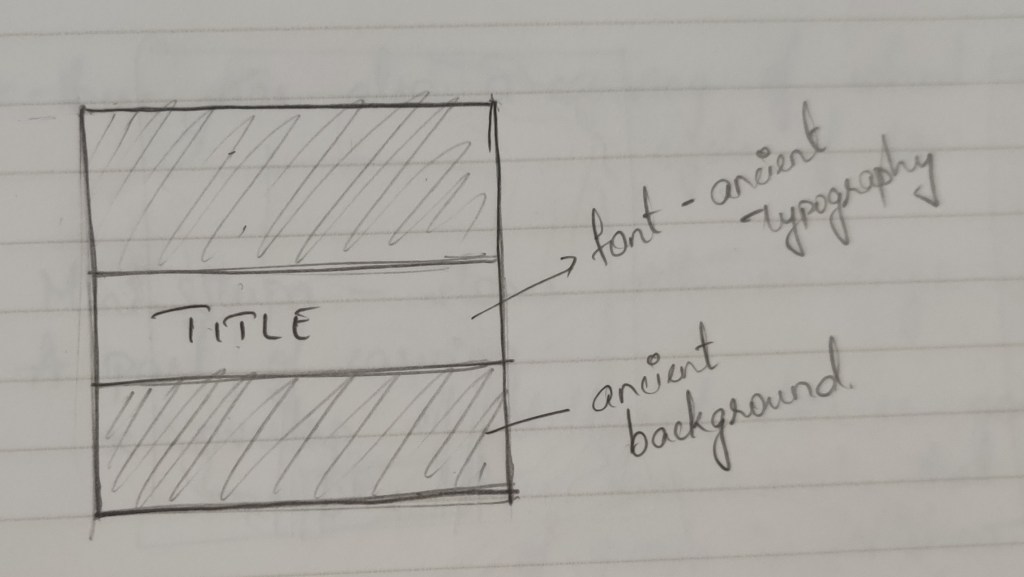 TITLE
font - ancient
typography
ancient
background.